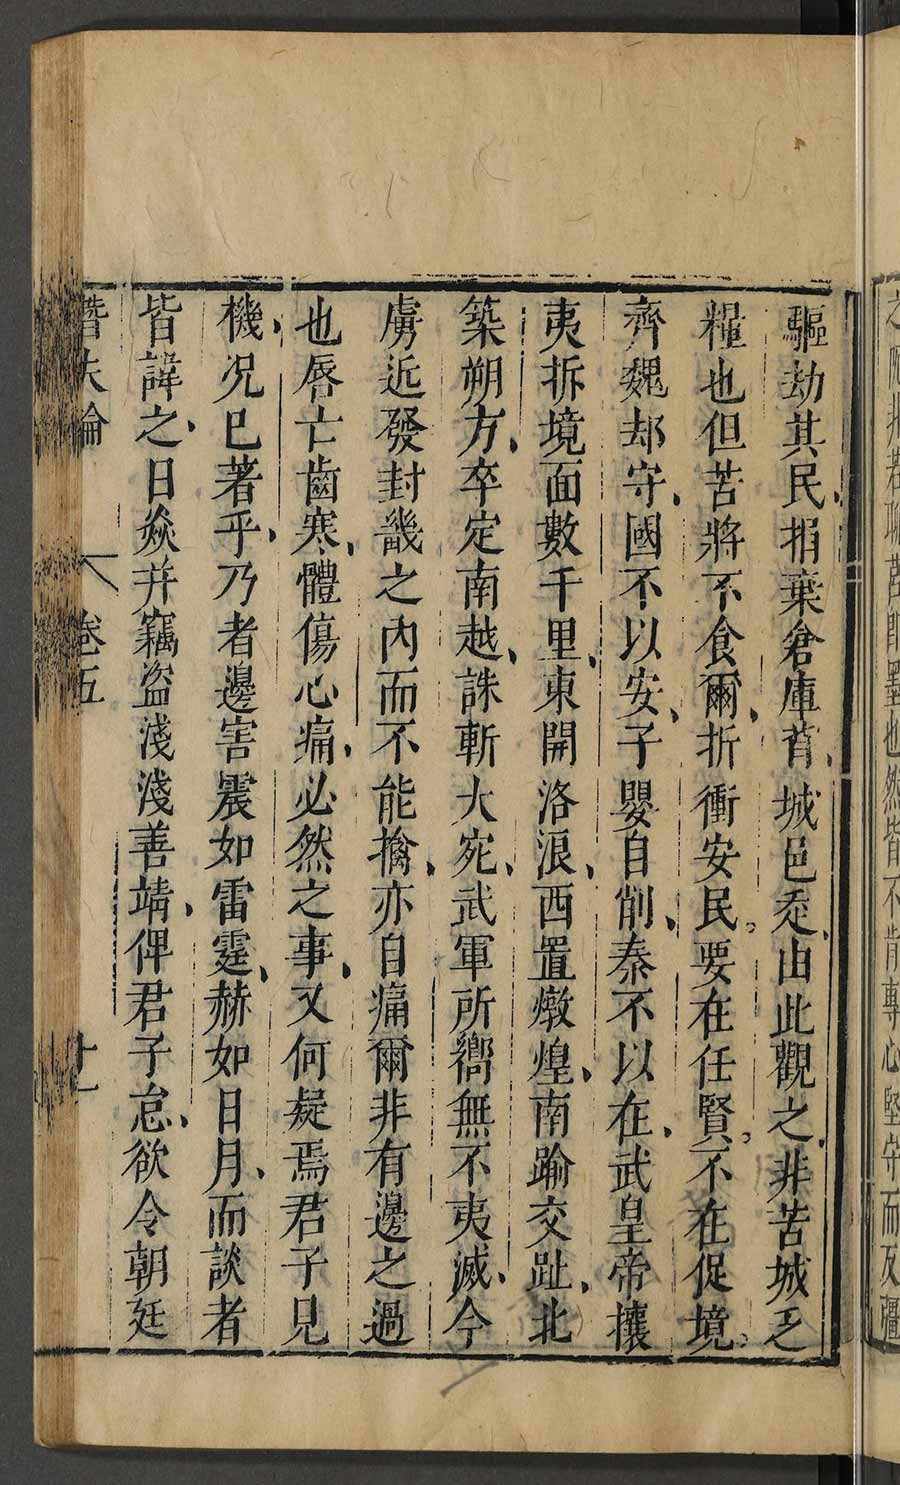 之
若聊莒即墨也然皆不肯專心堅守而反彊
驅劫其民捐棄倉庫背城邑走由此觀之非苦城乏
糧也但苦將不食爾折衝安民要在任賢不在促境
齊魏却守國不以安子嬰自削秦不以在武皇帝攘
夷拆境面數千里東開洛浪西置燉煌南踰交趾北
築朔方卒定南越誅斬大宛武軍所嚮無不夷滅今
虜近發封畿之內而不能擒亦自痛爾非有邊之過
也唇亡齒寒體傷心痛必然之事又何疑焉君子見
機况已著乎乃者邊害震如雷霆赫如日月而談者
皆諱之曰焱并竊盜淺淺善靖俾君子怠欲令朝廷
潛夫論 卷五 廿一